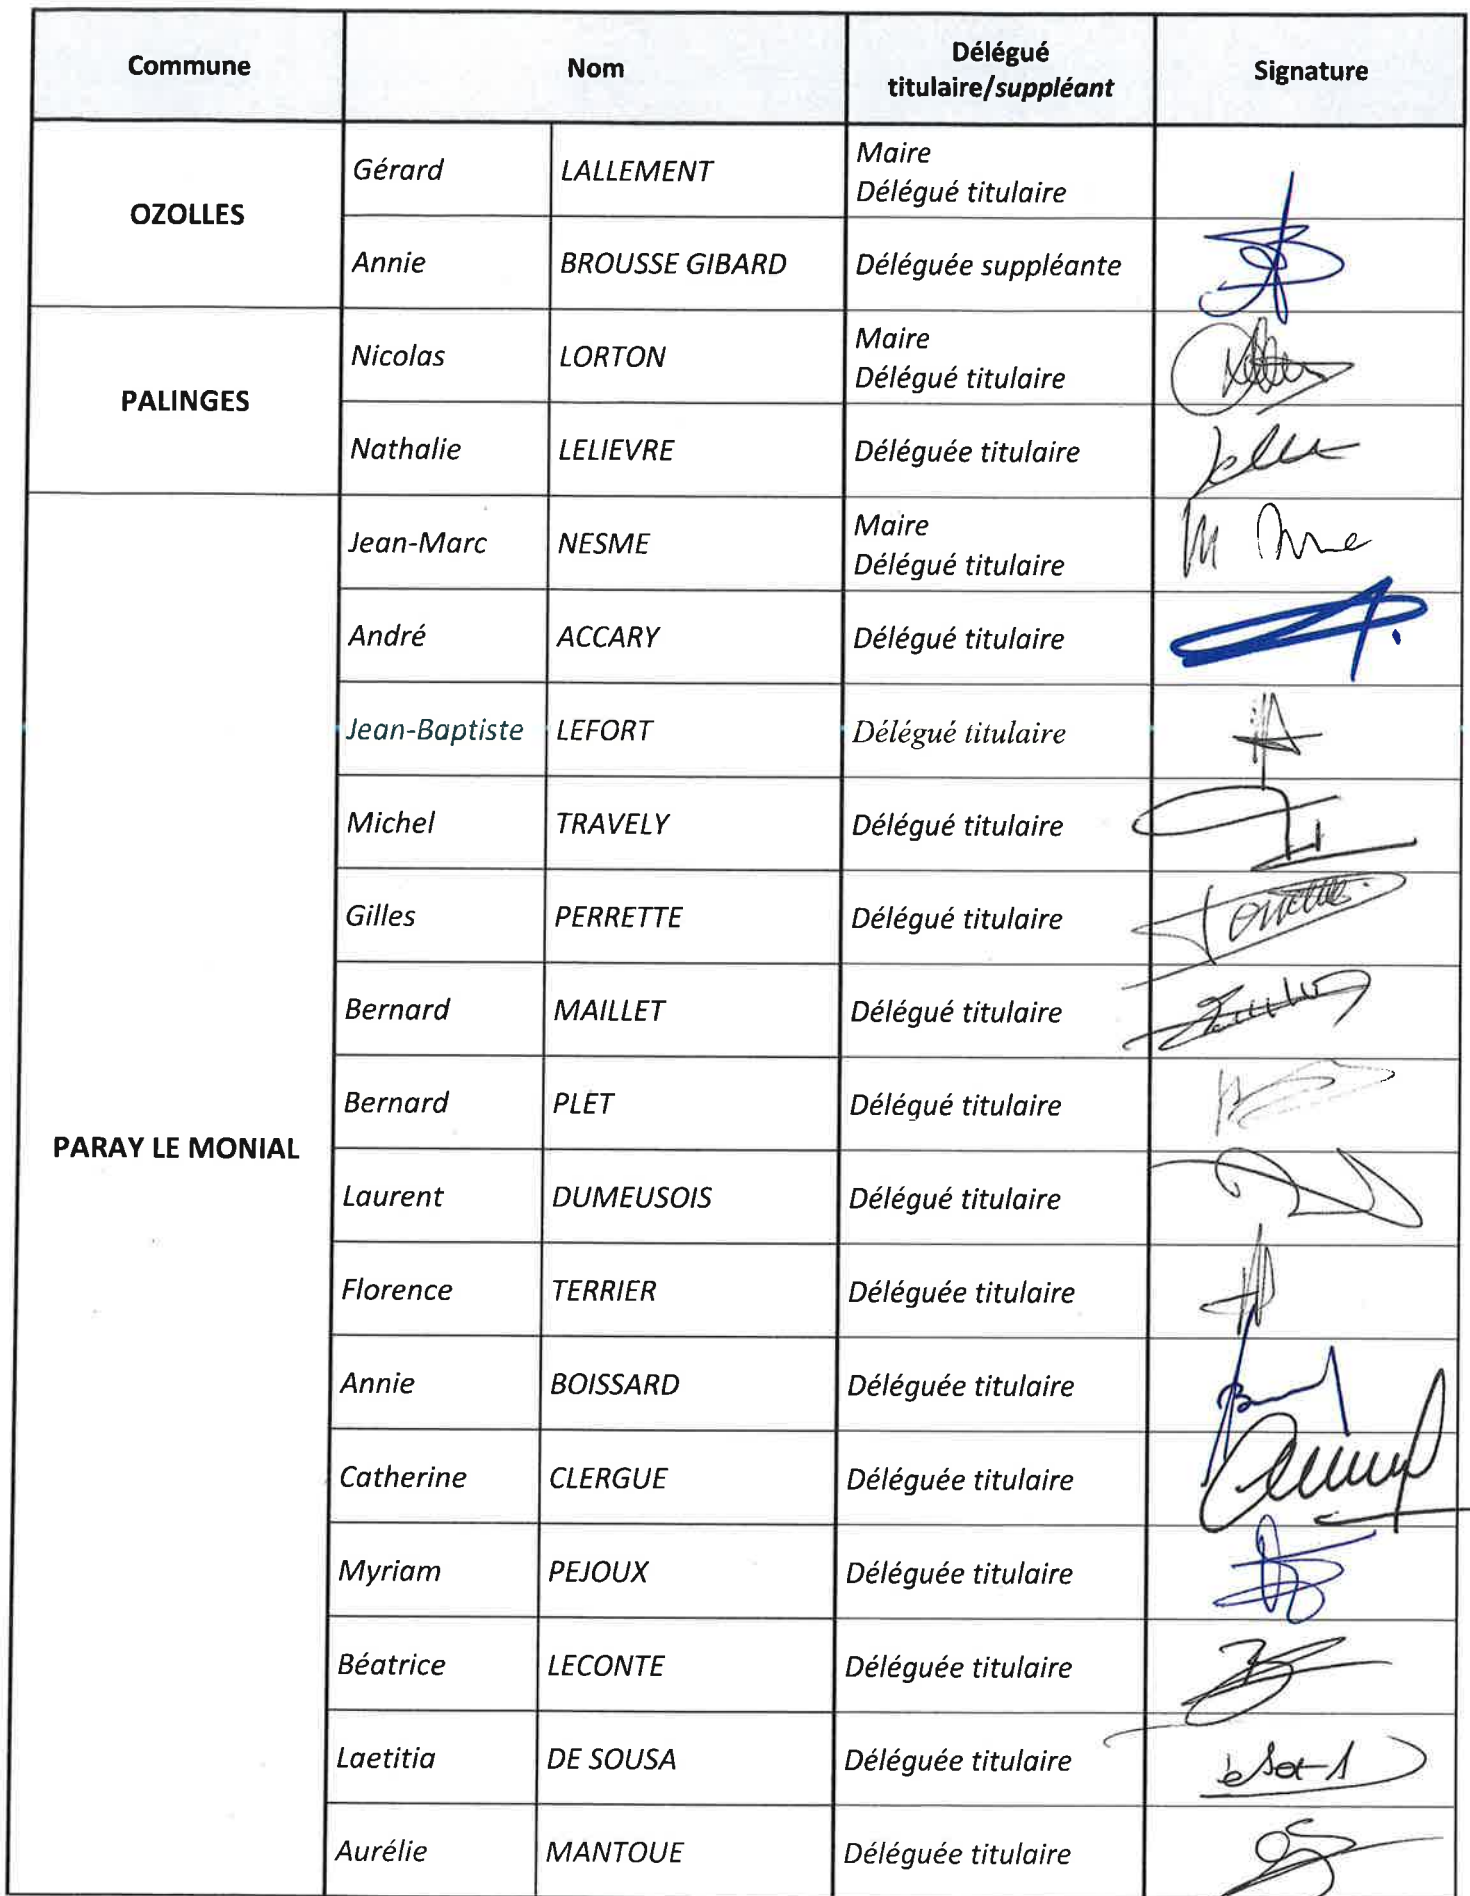 Commune Nom Délégué titulaire/suppléant Signature
OZOLLES
Gérard LALLEMENT Maire Délégué titulaire
Annie BROUSSE GIBARD Déléguée suppléante
PALINGES
Nicolas LORTON Maire Délégué titulaire
Nathalie LELIEVRE Déléguée titulaire
PARAY LE MONIAL
Jean-Marc NESME Maire Délégué titulaire
André ACCARY Délégué titulaire
Jean-Baptiste LEFORT Délégué titulaire
Michel TRAVELY Délégué titulaire
Gilles PERRETTE Délégué titulaire
Bernard MAILLET Délégué titulaire
Bernard PLET Délégué titulaire
Laurent DUMEUSOIS Délégué titulaire
Florence TERRIER Déléguée titulaire
Annie BOISSARD Déléguée titulaire
Catherine CLERGUE Déléguée titulaire
Myriam PEJOUX Déléguée titulaire
Béatrice LECONTE Déléguée titulaire
Laetitia DE SOUSA Déléguée titulaire
Aurélie MANTOUE Déléguée titulaire